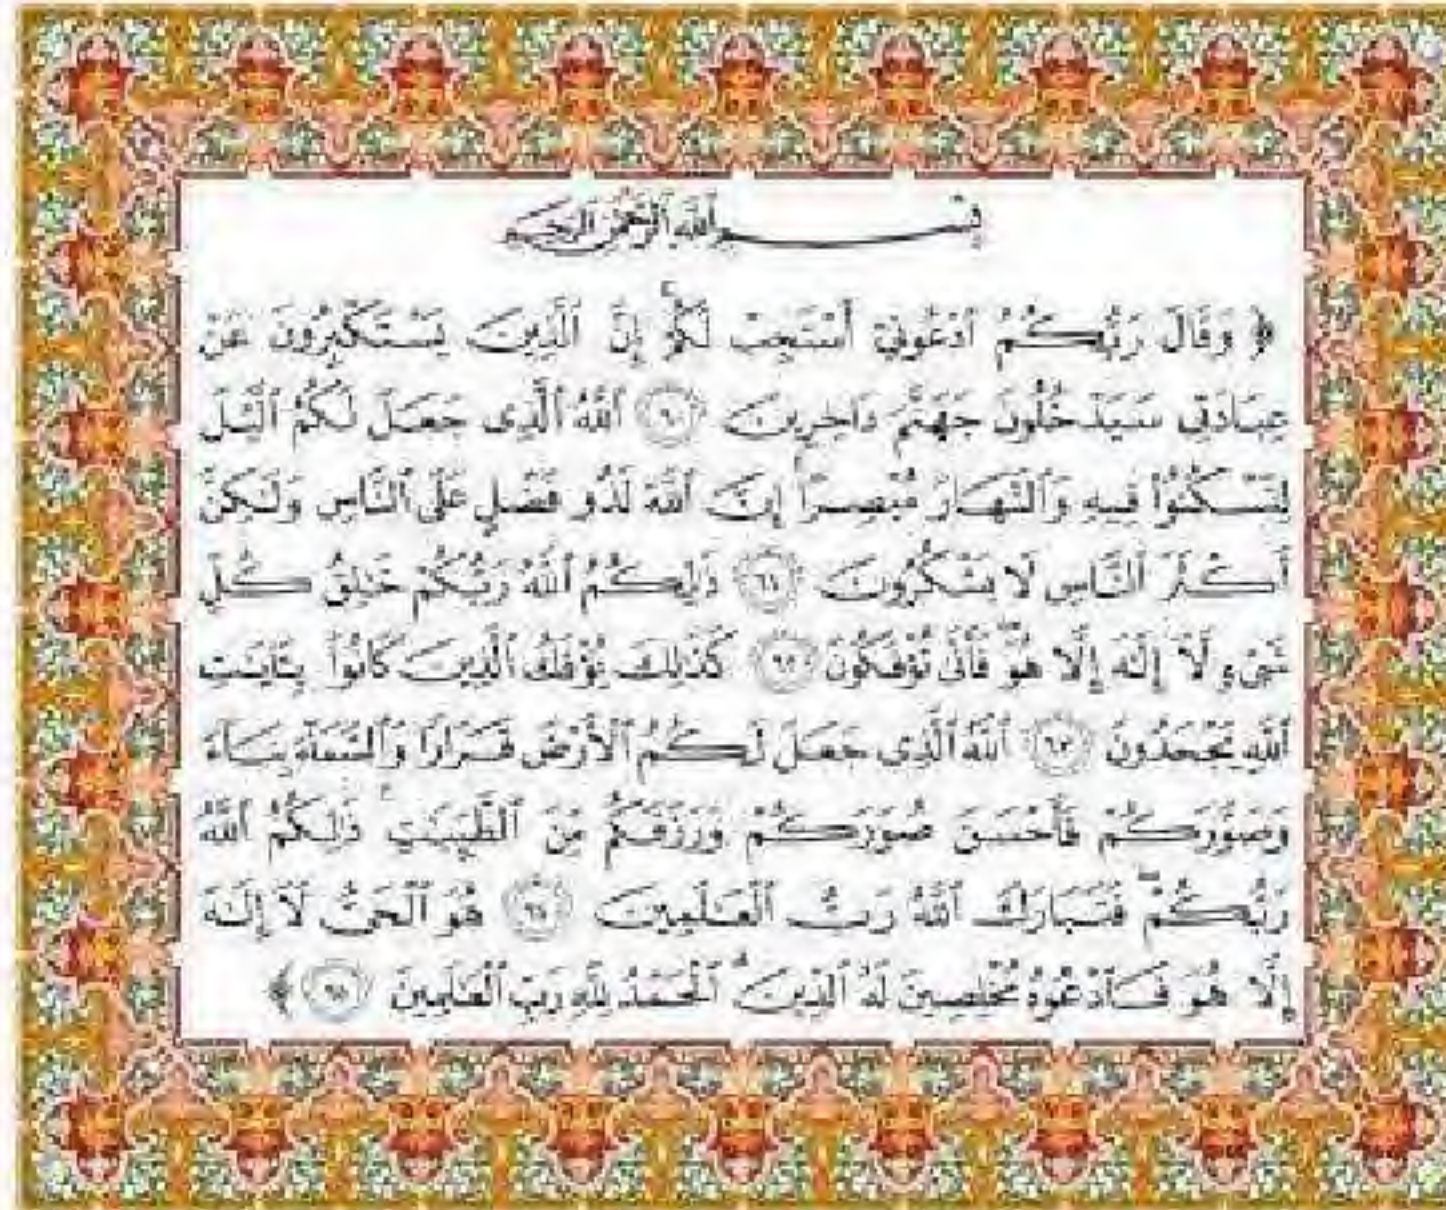 بِسْمِ ٱللَّهِ ٱلرَّحْمَٰنِ ٱلرَّحِيمِ
﴿ وَقَالَ رَبُّكُمُ ٱدْعُونِىٓ أَسْتَجِبْ لَكُمْ ۚ إِنَّ ٱلَّذِينَ يَسْتَكْبِرُونَ عَنْ
عِبَادَتِى سَيَدْخُلُونَ جَهَنَّمَ دَاخِرِينَ ٦٠ ٱللَّهُ ٱلَّذِى جَعَلَ لَكُمُ ٱلَّيْلَ
لِتَسْكُنُوا۟ فِيهِ وَٱلنَّهَارَ مُبْصِرًا ۚ إِنَّ ٱللَّهَ لَذُو فَضْلٍ عَلَى ٱلنَّاسِ وَلَٰكِنَّ
أَكْثَرَ ٱلنَّاسِ لَا يَشْكُرُونَ ٦١ ذَٰلِكُمُ ٱللَّهُ رَبُّكُمْ خَٰلِقُ كُلِّ
شَىْءٍ لَّآ إِلَٰهَ إِلَّا هُوَ ۖ فَأَنَّىٰ تُؤْفَكُونَ ٦٢ كَذَٰلِكَ يُؤْفَكُ ٱلَّذِينَ كَانُوا۟ بِـَٔايَٰتِ
ٱللَّهِ يَجْحَدُونَ ٦٣ ٱللَّهُ ٱلَّذِى جَعَلَ لَكُمُ ٱلْأَرْضَ قَرَارًا وَٱلسَّمَآءَ بِنَآءً
وَصَوَّرَكُمْ فَأَحْسَنَ صُوَرَكُمْ وَرَزَقَكُم مِّنَ ٱلطَّيِّبَٰتِ ۚ ذَٰلِكُمُ ٱللَّهُ
رَبُّكُمْ ۖ فَتَبَارَكَ ٱللَّهُ رَبُّ ٱلْعَٰلَمِينَ ٦٤ هُوَ ٱلْحَىُّ لَآ إِلَٰهَ
إِلَّا هُوَ فَٱدْعُوهُ مُخْلِصِينَ لَهُ ٱلدِّينَ ۗ ٱلْحَمْدُ لِلَّهِ رَبِّ ٱلْعَٰلَمِينَ ٦٥ ﴾